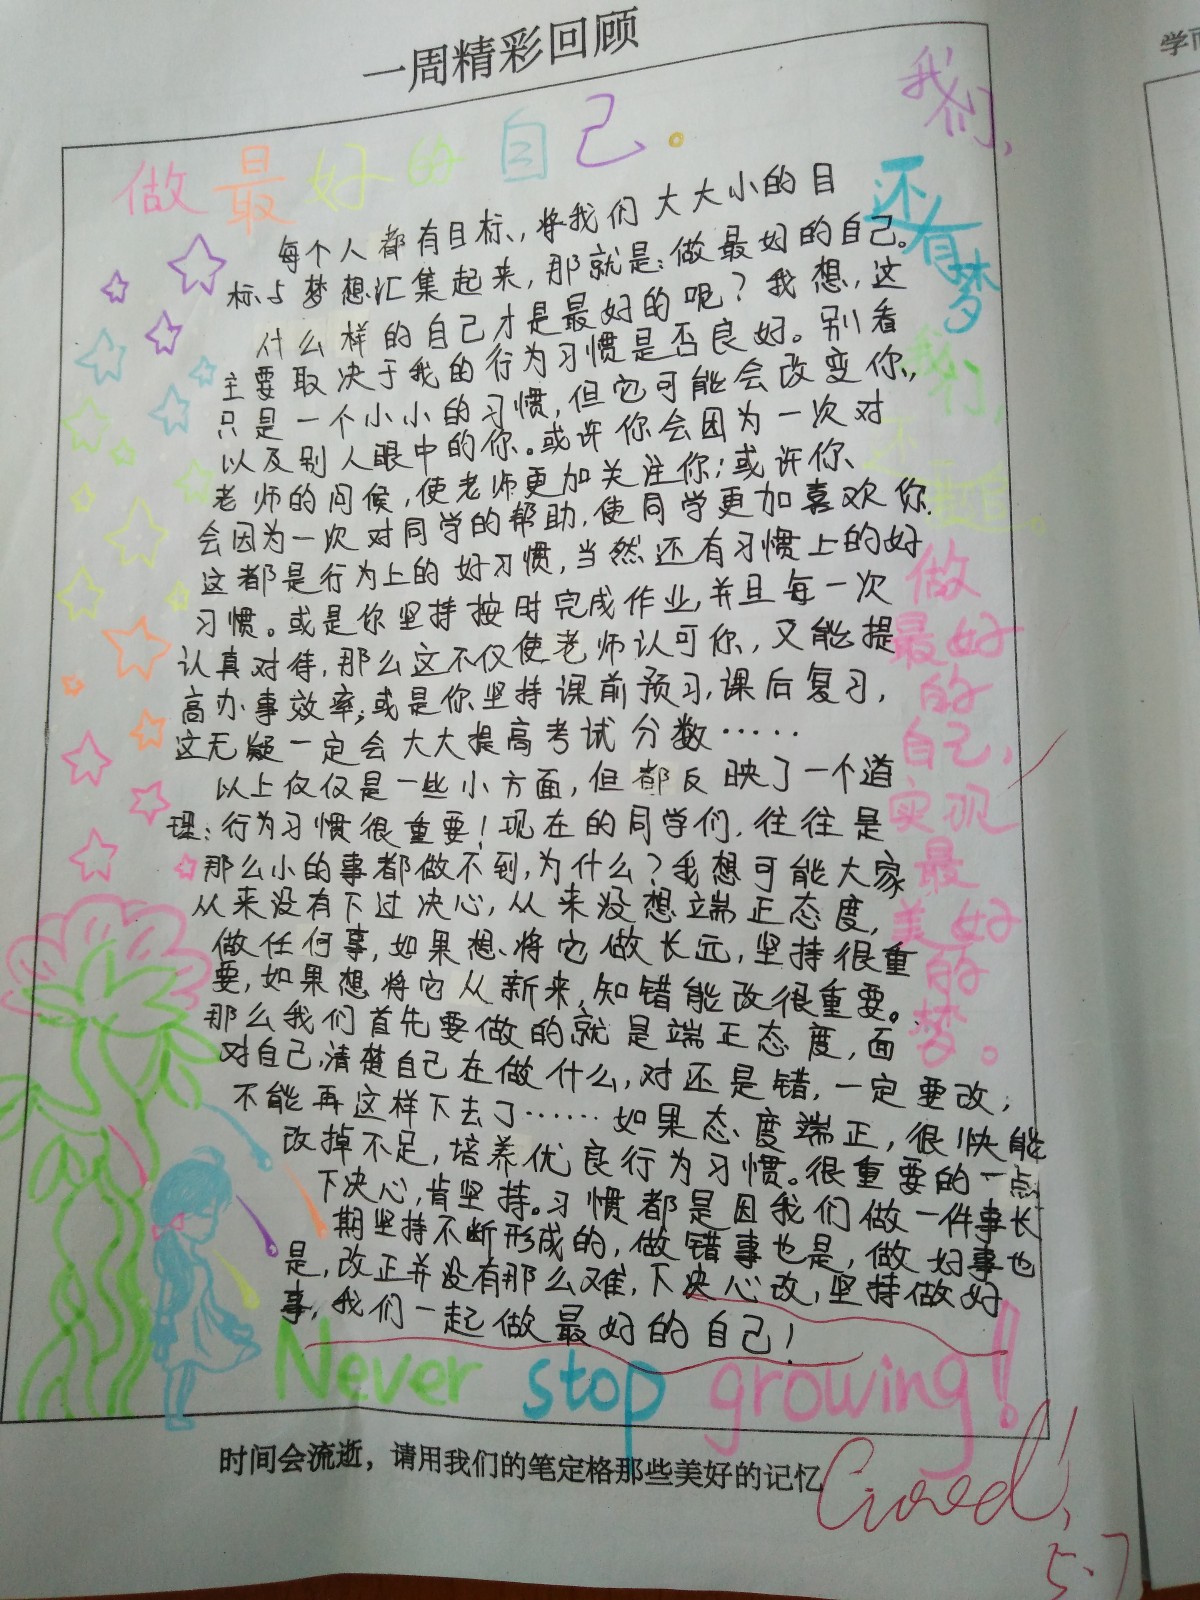 一周精彩回顾
做最好的自己。
每个人都有目标,将我们大大小的目
标与梦想汇集起来,那就是:做最好的自己。
什么样的自己才是最好的呢?我想,这
主要取决于我的行为习惯是否良好。别看
只是一个小小的习惯,但它可能会改变你,
以及别人眼中的你。或许你会因为一次对
老师的问候,使老师更加关注你;或许你、
会因为一次对同学的帮助,使同学更加喜欢你.
这都是行为上的好习惯,当然还有习惯上的好
习惯。或是你坚持按时完成作业,并且每一次
认真对待,那么这不仅使老师认可你,又能提
高办事效率;或是你坚持课前预习,课后复习,
这无疑一定会大大提高考试分数……
以上仅仅是一些小方面,但都反映了一个道
理:行为习惯很重要!现在的同学们,往往是
那么小的事都做不到,为什么?我想可能大家
从来没有下过决心,从来没想端正态度,
做任何事,如果想将它做长远,坚持很重
要,如果想将它从新来,知错能改很重要。
那么我们首先要做的就是端正态度,面
对自己,清楚自己在做什么,对还是错,一定要改,
不能再这样下去了……如果态度端正,很快能
改掉不足,培养优良行为习惯。很重要的一点
下决心,肯坚持。习惯都是因我们做一件事长
期坚持不断形成的,做错事也是,做好事也
是,改正并没有那么难,下决心改,坚持做好
事,我们一起做最好的自己!
我们,
还有梦
我们,
还
做
最好
的
自己,
实现
最
美好
的
梦。
Never stop growing!
时间会流逝,请用我们的笔定格那些美好的记忆
Good!
5.7